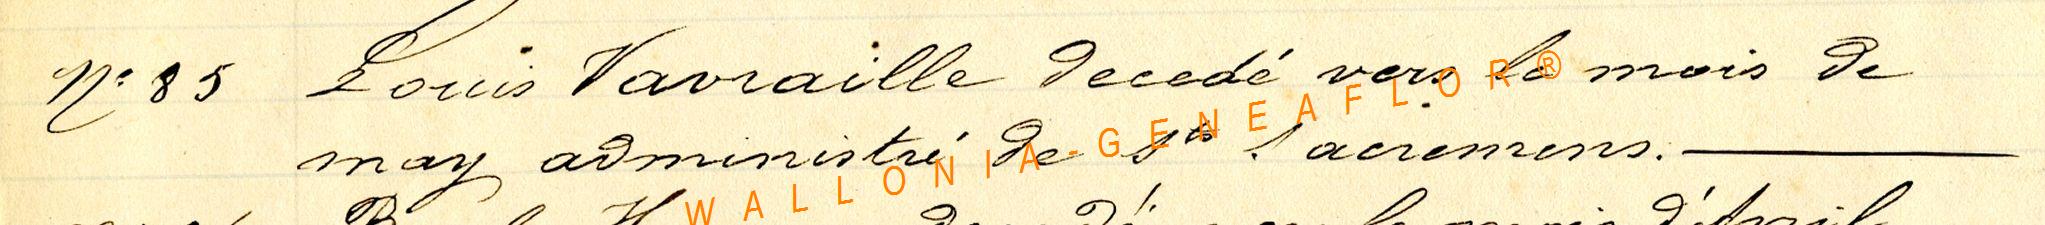 N° 85 Louis Vavraille decedé vers le mois de
may administré de Sts Sacremens.
decedé vers le mois d'Avril
WALLONIA-GENEAFLOR®